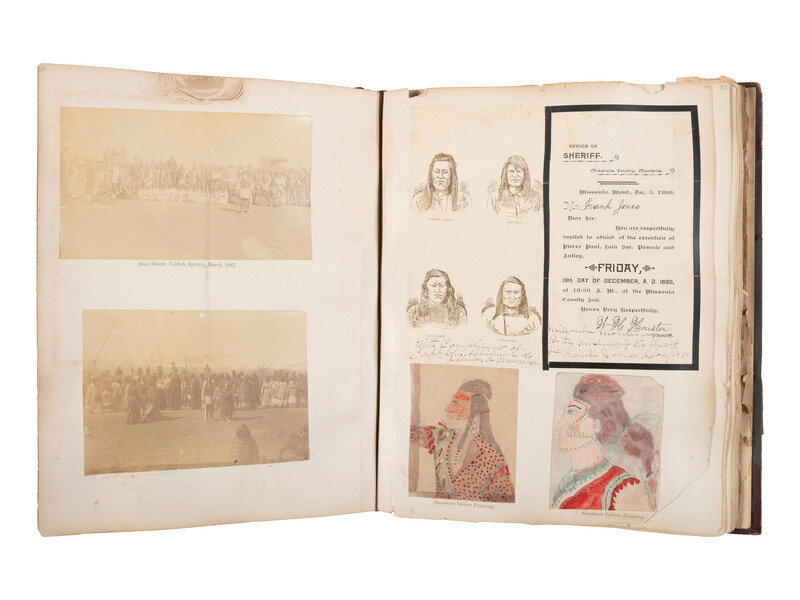 Bear Dance, Uintah Agency, March, 1887.
PIERRE PAUL
ANTLEY
LALA SEE
PASCALE
With Compliments of
OFFICE OF
SHERIFF.
Missoula County, Montana.
Missoula, Mont., Dec. 3, 1890.
Mr. Frank Jones
Dear Sir:
You are respectfully
invited to attend at the execution of
Pierre Paul, Lala See, Pascale and
Antley.
FRIDAY,
19th DAY OF DECEMBER, A. D. 1890,
at 10:30 A. M., at the Missoula
County Jail.
Yours Very Respectfully,
W H Houston
Sheriff.
Shoshone Indian Painting.
Shoshone Indian Painting.